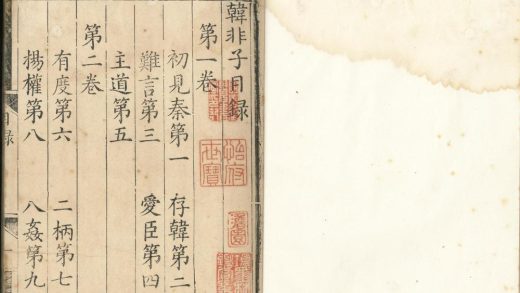 韓非子目録
第一卷
初見秦第一　存韓第二
難言第三　愛臣第四
主道第五
第二卷
有度第六　二柄第七
揚權第八　八姦第九
目録
怡府世寶